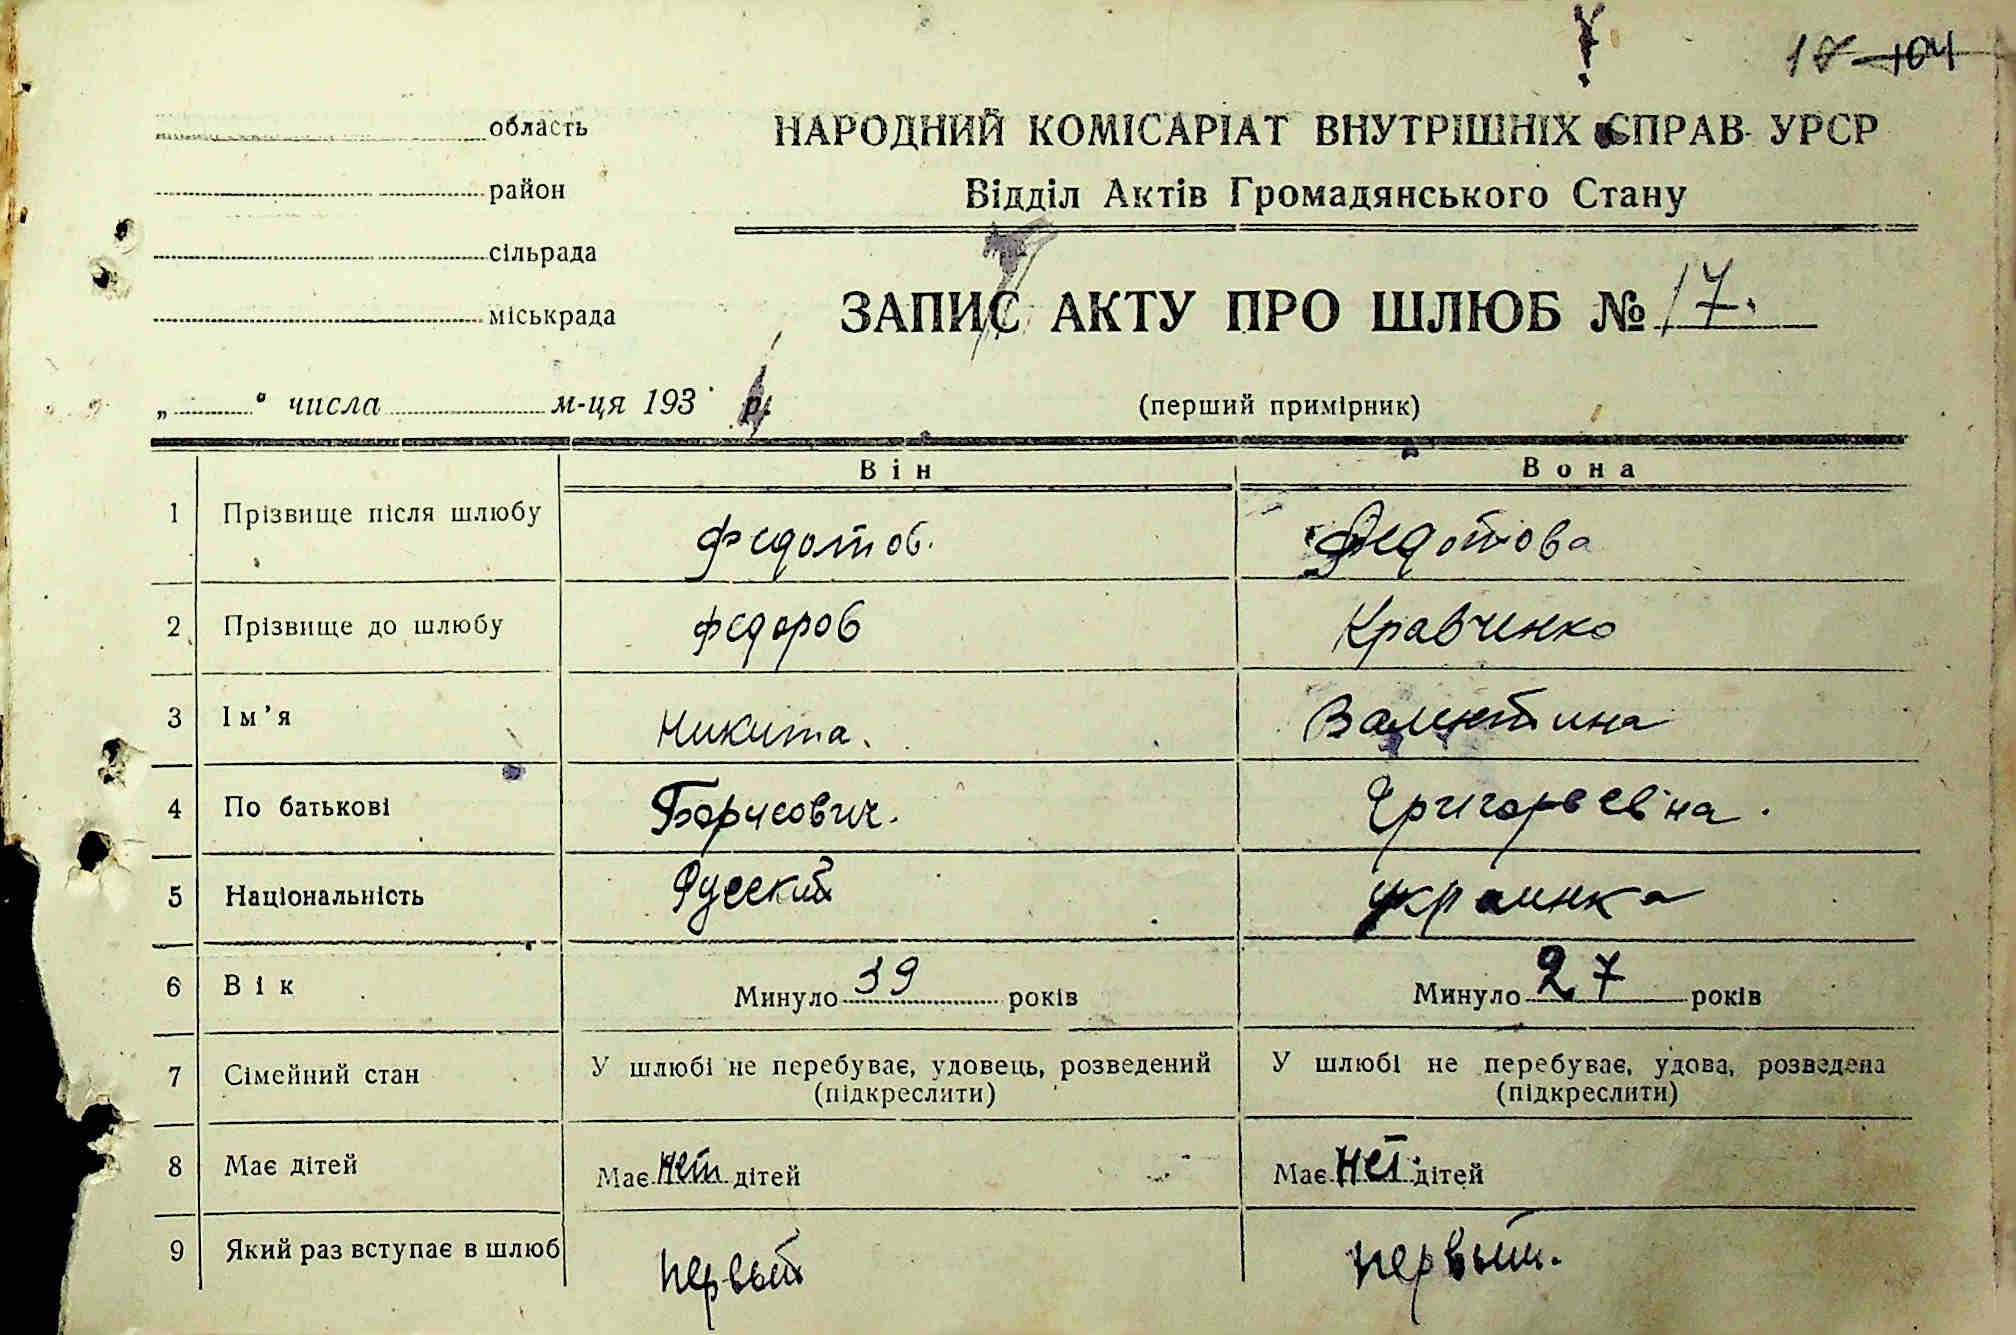 область
район
сільрада
міськрада
НАРОДНИЙ КОМІСАРІАТ ВНУТРІШНІХ СПРАВ УРСР
Відділ Актів Громадянського Стану
ЗАПИС АКТУ ПРО ШЛЮБ № 17.
„ “ числа м-ця 193 р.
(перший примірник)
Він Вона
1 Прізвище після шлюбу Федотов. Федотова
2 Прізвище до шлюбу Федоров Кравченко
3 Ім'я Никита. Валентина
4 По батькові Борисович. Григорьевна.
5 Національність Русский украинка
6 Вік Минуло 39 років Минуло 27 років
7 Сімейний стан У шлюбі не перебуває, удовець, розведений У шлюбі не перебуває, удова, розведена
(підкреслити) (підкреслити)
8 Має дітей Має нет дітей Має нет дітей
9 Який раз вступає в шлюб первый первый.